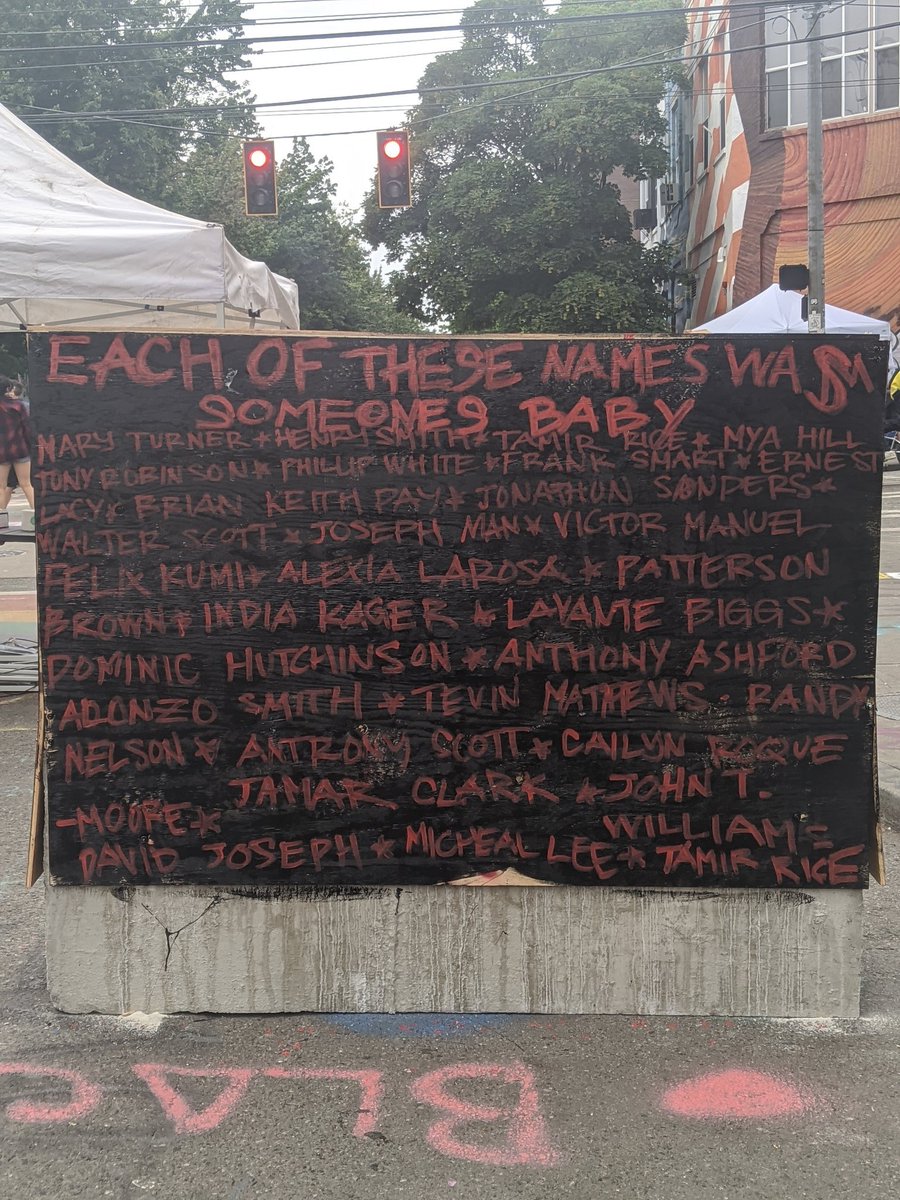 EACH OF THESE NAMES WAS
SOMEONES BABY
MARY TURNER * HENRY SMITH * TAMIR RICE * MYA HILL
TONY ROBINSON * PHILLIP WHITE * FRANK SMART * ERNEST
LACY * BRIAN KEITH DAY * JONATHON SANDERS *
WALTER SCOTT * JOSEPH MAN * VICTOR MANUEL
FELIX KUMI * ALEXIA LAROSA * PATTERSON
BROWN * INDIA KAGER * LAVANTE BIGGS *
DOMINIC HUTCHINSON * ANTHONY ASHFORD
ALONZO SMITH * TEVIN MATHEWS · RANDY
NELSON * ANTRONY SCOTT * CAILYN ROQUE
JAMAR CLARK * JOHN T.
-MOORE * WILLIAMS
DAVID JOSEPH * MICHEAL LEE * TAMIR RICE
BLAC